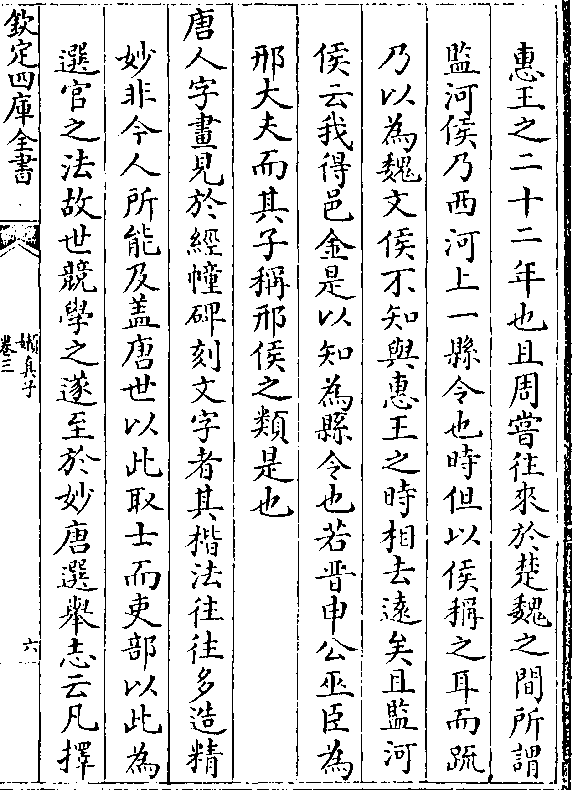 惠王之二十二年也且周嘗往來於楚魏之間所謂
監河侯乃西河上一縣令也時但以侯稱之耳而䟽
乃以為魏文侯不知與惠王之時相去遠矣且監河
侯云我得邑金是以知為縣令也若晋申公巫臣為
邢大夫而其子稱邢侯之類是也
唐人字畫見於經幢碑刻文字者其揩法往往多造精
妙非今人所能及盖唐世以此取士而吏部以此為
選官之法故世競學之遂至於妙唐選舉志云凡擇
欽定四庫全書
嬾真子
卷三
六